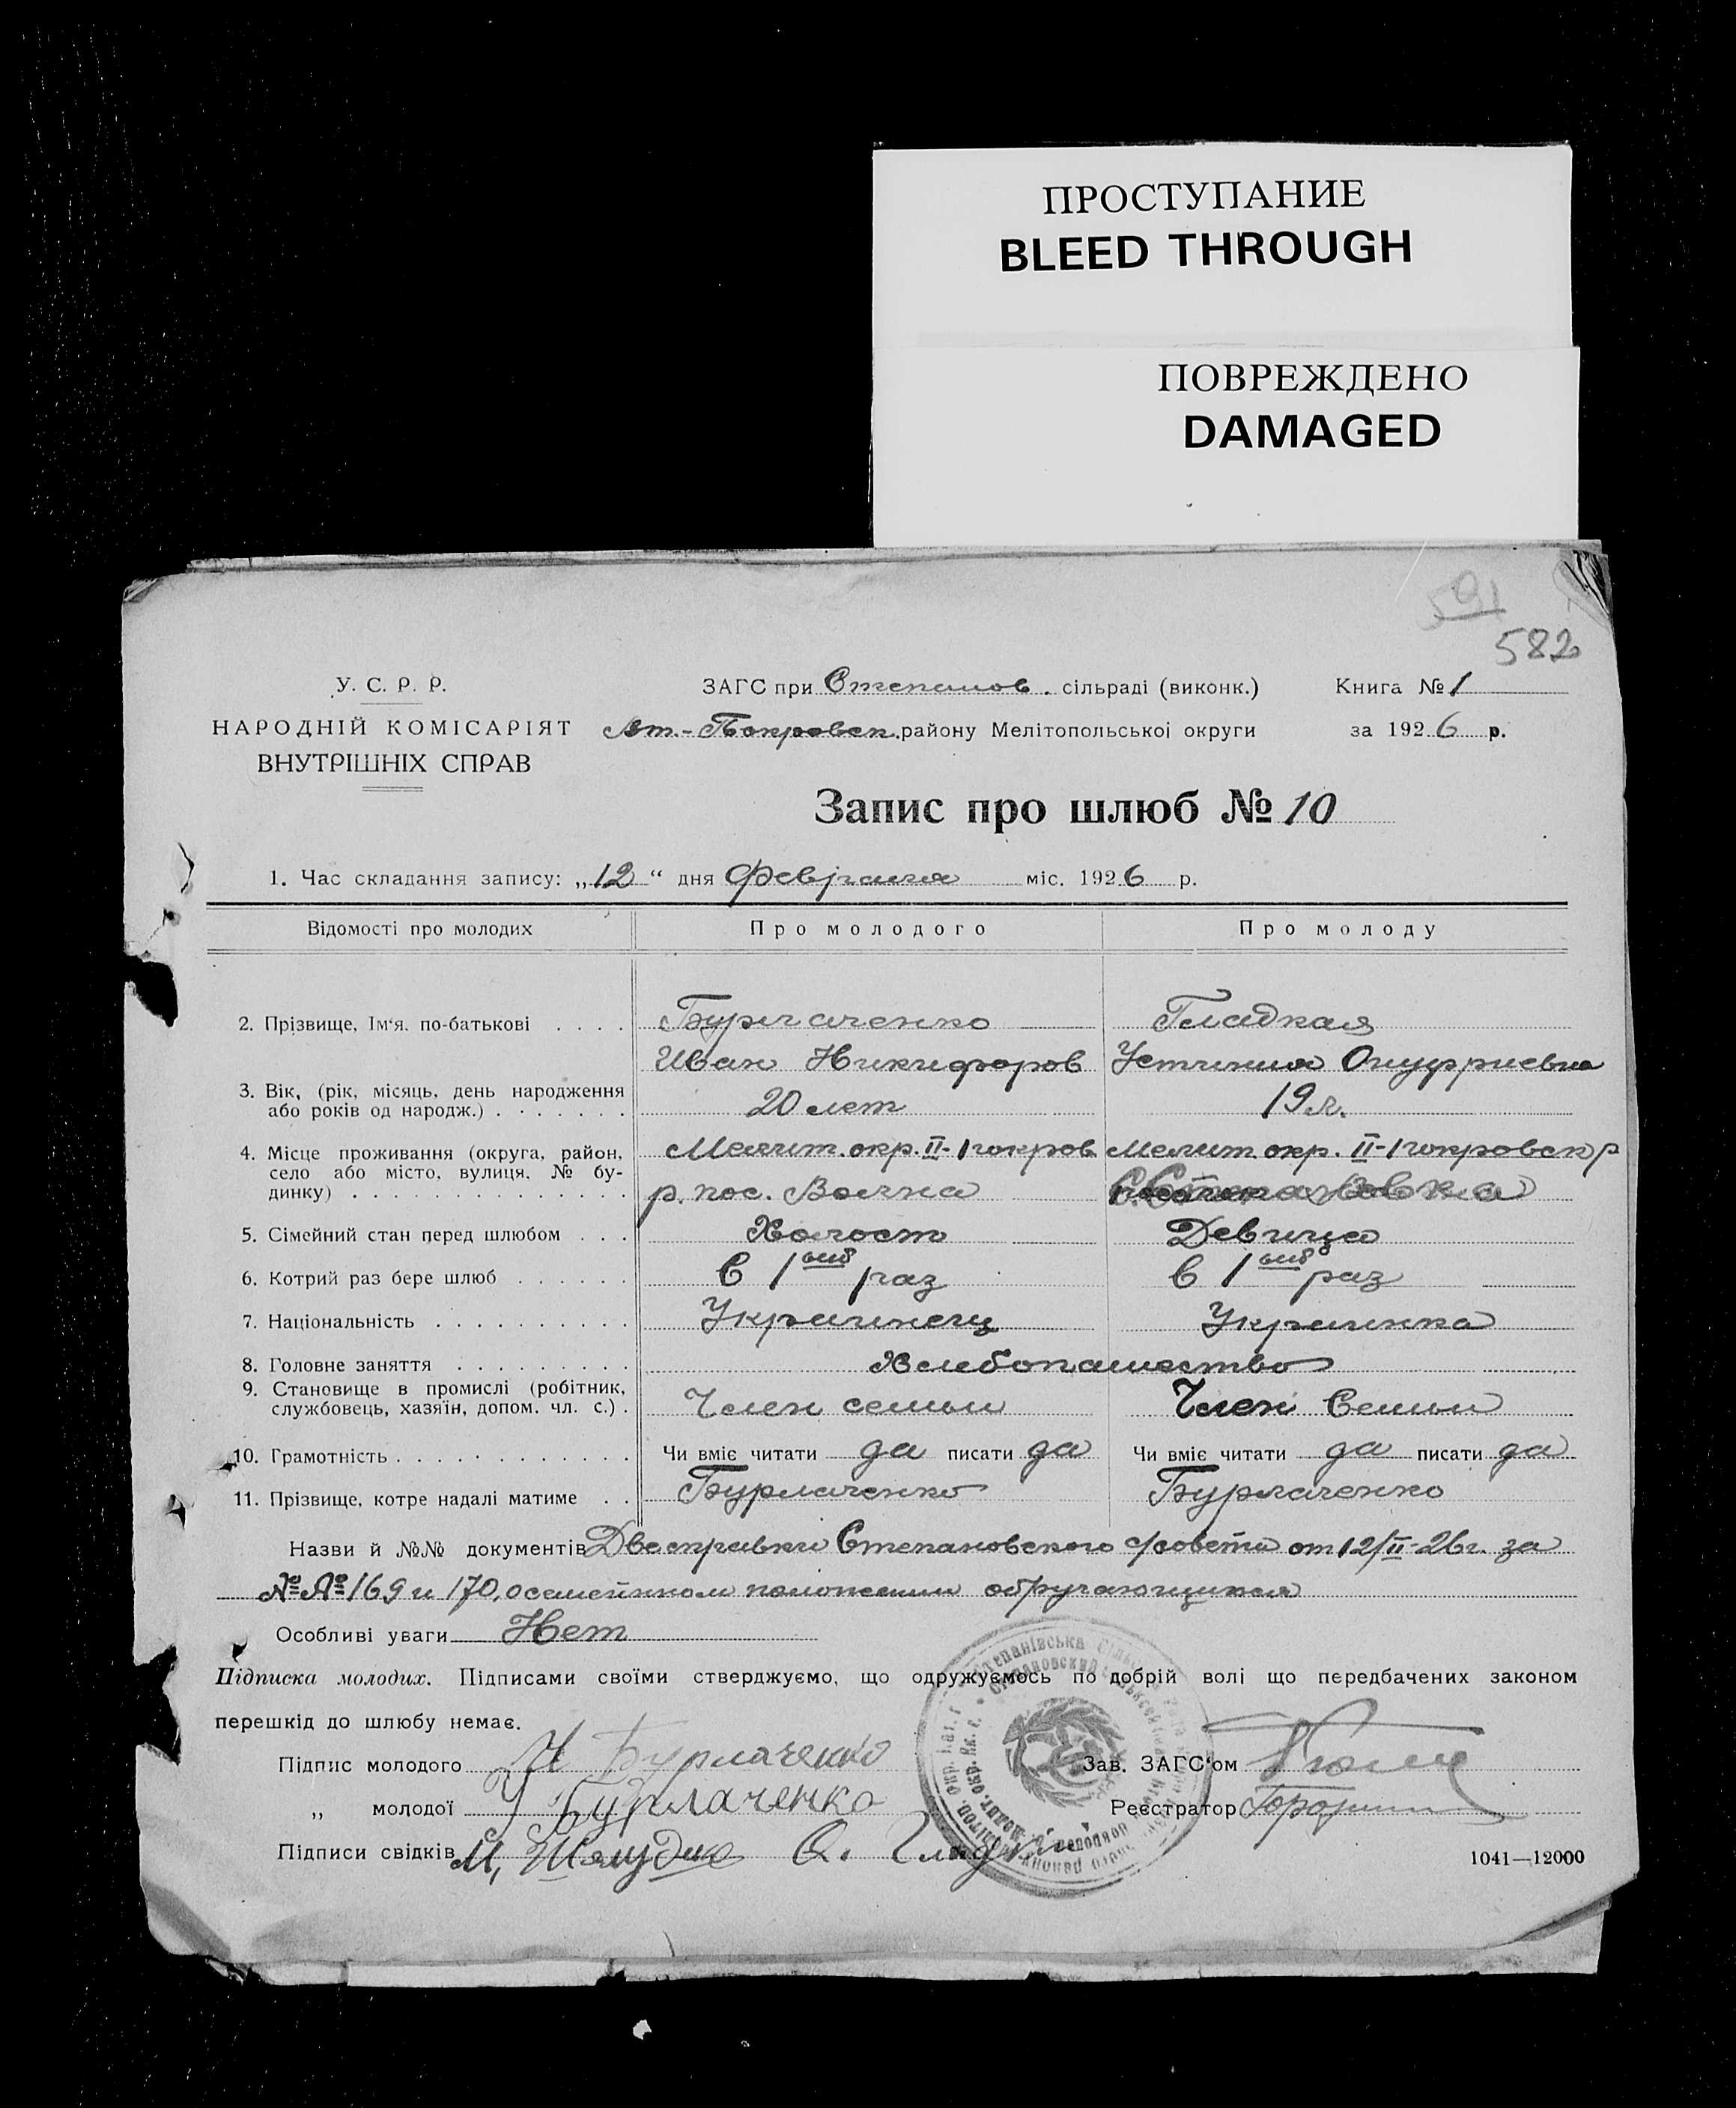 ПРОСТУПАНИЕ
BLEED THROUGH
ПОВРЕЖДЕНО
DAMAGED
591
582
У. С. Р. Р.
НАРОДНІЙ КОМІСАРІЯТ
ВНУТРІШНІХ СПРАВ
ЗАГС при Степанов. сільраді (виконк.)
Вт.-Покровск. району Мелітопольської округи
Книга № 1
за 1926 р.
Запис про шлюб № 10
1. Час складання запису: „12“ дня Февраля міс. 1926 р.
Відомості про молодих Про молодого Про молоду
2. Прізвище, Ім'я, по-батькові . . . . Бурлаченко Гладкая
Иван Никифоров Устиния Онуфриевна
3. Вік, (рік, місяць, день народження або років од народж.) . . . . . . . 20 лет 19 л.
4. Місце проживання (округа, район, село або місто, вулиця, № будинку) . . . . . . . . . . . . . Мелит. окр. II-Покров Мелит. окр. II-Покровск р
р. пос. Волна С. Степановка
5. Сімейний стан перед шлюбом . . . Холост Девица
6. Котрий раз бере шлюб . . . . . . В 1ый раз В 1ый раз
7. Національність . . . . . . . . . . Украинец Украинка
8. Головне заняття . . . . . . . . . Хлебопашество
9. Становище в промислі (робітник, службовець, хазяїн, допом. чл. с.) . Член семьи Член Семьи
10. Грамотність . . . . . . . . . . . . Чи вміє читати да писати да Чи вміє читати да писати да
11. Прізвище, котре надалі матиме . . Бурлаченко Бурлаченко
Назви й №№ документів Две справки Степановского с/совета от 12/II-26 г. за
№ № 169 и 170, о семейном положении обручающихся
Особливі уваги Нет
Підписка молодих. Підписами своїми стверджуємо, що одружуємось по добрій волі що передбачених законом
перешкід до шлюбу немає.
Підпис молодого И Бурлаченко
Зав. ЗАГС'ом
„ молодої У Бурлаченко
Реєстратор
Підписи свідків М, О. Гладкий
1041—12000